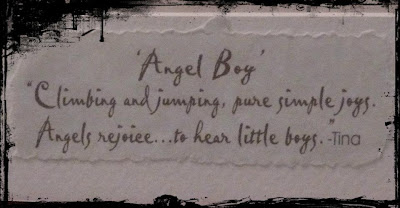 'Angel Boy'
"Climbing and jumping, pure simple joys.
Angels rejoice...to hear little boys." -Tina